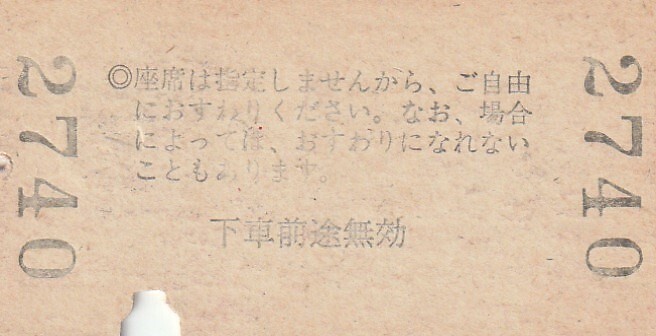 2740
◎座席は指定しませんから、ご自由
におすわりください。なお、場合
によっては、おすわりになれない
こともあります。
下車前途無効
2740